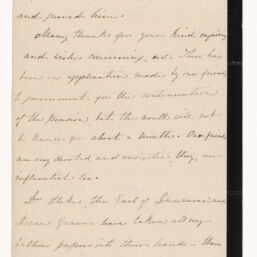 and
him.
Many thanks for your kind inquiry
and wishes concerning us. There has
been an application made by our friends
to government for the continuation
of the pension but the result will not
be known for about a month. Our friends
are very devoted and energetic, they are
influential too.
Dr. Stokes, the Earl of Dunraven and
Dean Graves have taken all my
fathers papers into their hands